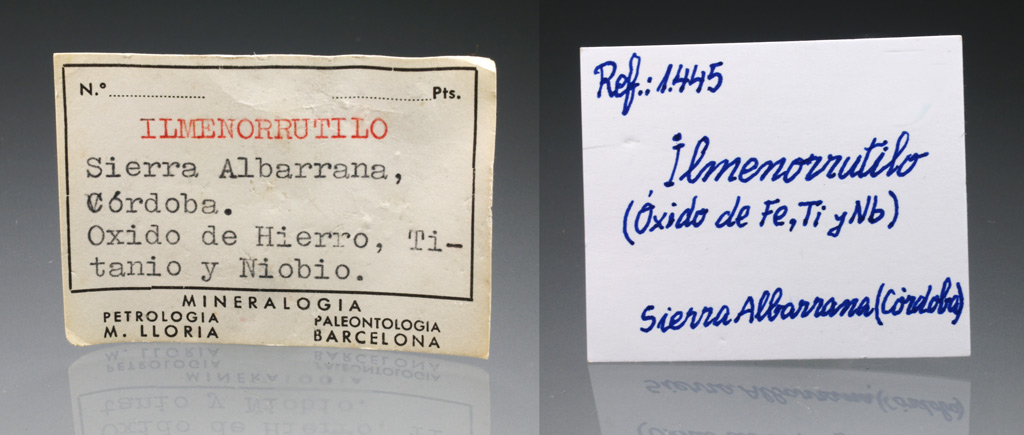 N.º.................... ....................Pts.
ILMENORRUTILO
Sierra Albarrana,
Córdoba.
Oxido de Hierro, Ti-
tanio y Niobio.
MINERALOGIA
PETROLOGIA PALEONTOLOGIA
M. LLORIA BARCELONA
Ref.: 1.445
Ilmenorrutilo
(Óxido de Fe, Ti y Nb)
Sierra Albarrana (Córdoba)